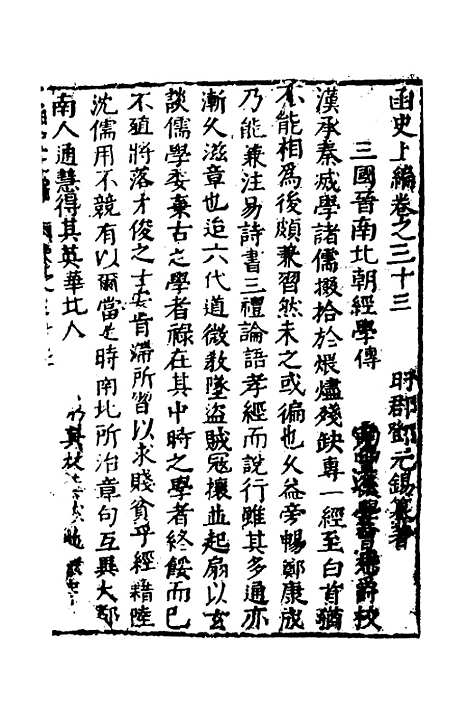 函史上編卷之三十三
盱郡鄧元錫纂著
三國晉南北朝經學傳
校
漢承秦滅學諸儒掇拾於煨燼殘缺專一經至白首猶
不能相爲後頗兼習然未之或徧也久益旁暢鄭康成
乃能兼注易詩書三禮論語孝經而說行雖其多通亦
漸久滋章也迨六代道微教墜盜賊冦攘並起扇以玄
談儒學委棄古之學者祿在其中時之學者終餒而已
不殖將落才俊之士安肯滯所習以求賤貧乎經籍陸
沈儒用不競有以爾當是時南北所治章句互異大都
南人通慧得其英華北人